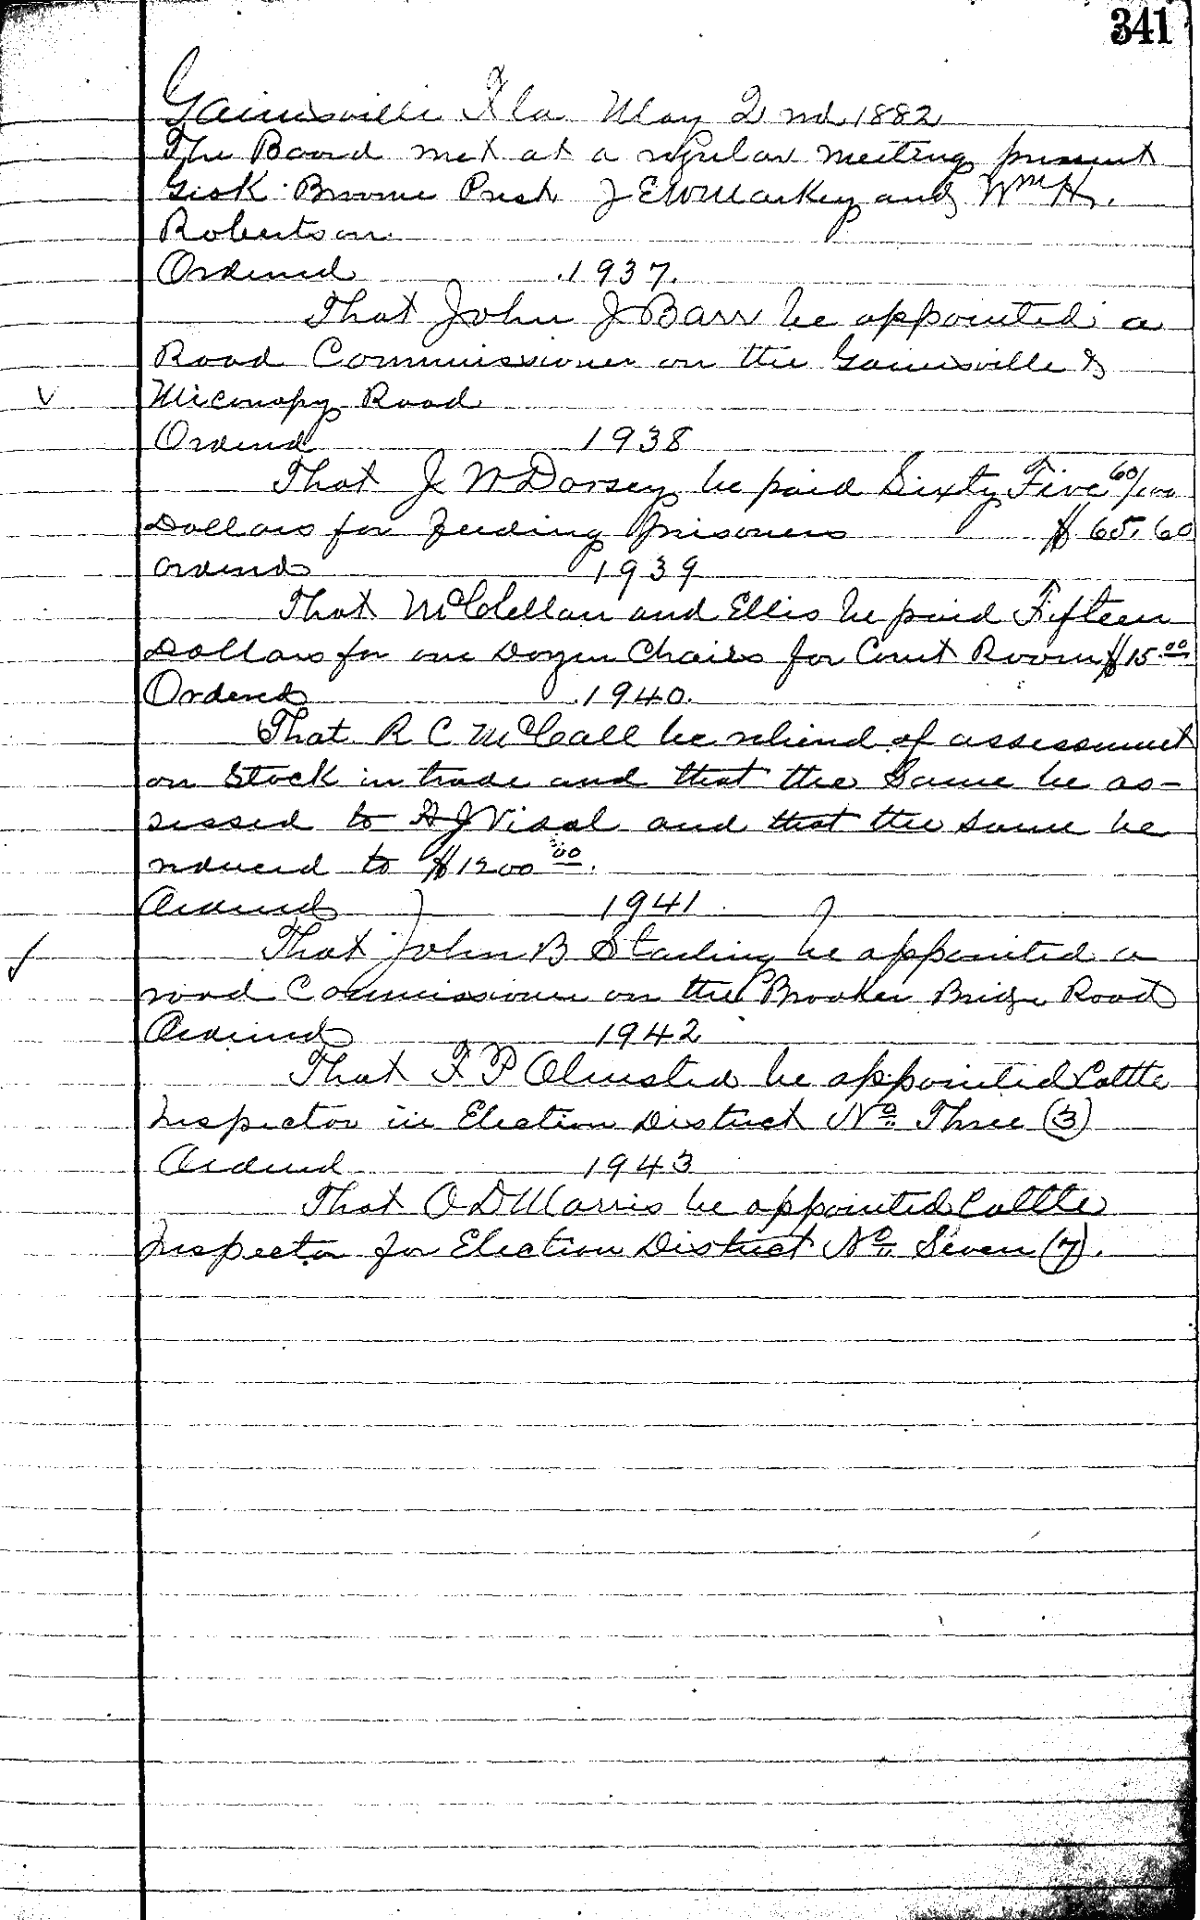 341
Gainesville Fla May 2nd 1882
The Board met at a regular meeting present
Broome Prest J E W Markey and Wm H.
Robertson.
Ordered 1937.
That John J Barr be appointed a
Road Commissioner on the Gainesville &
Micanopy Road
Ordered 1938
That J W Dorsey be paid Sixty Five 60/100
Dollars for feeding Prisoners $65.60
Ordered 1939
That McClellan and Ellis be paid Fifteen
Dollars for one Dozen Chairs for Court Room $15.00
Ordered 1940.
That R C McCall be relieved of assessment
on Stock in trade and that the Same be as-
sessed to A J Vidal and that the same be
reduced to $1200 00.
Ordered 1941
That John B Starling be appointed a
road Commissioner on the Brooker Bridge Road
Ordered 1942
That F P Olmsted be appointed Cattle
Inspector in Election District No. Three (3)
Ordered 1943
That O D Morris be appointed Cattle
Inspector for Election District No. Seven (7).